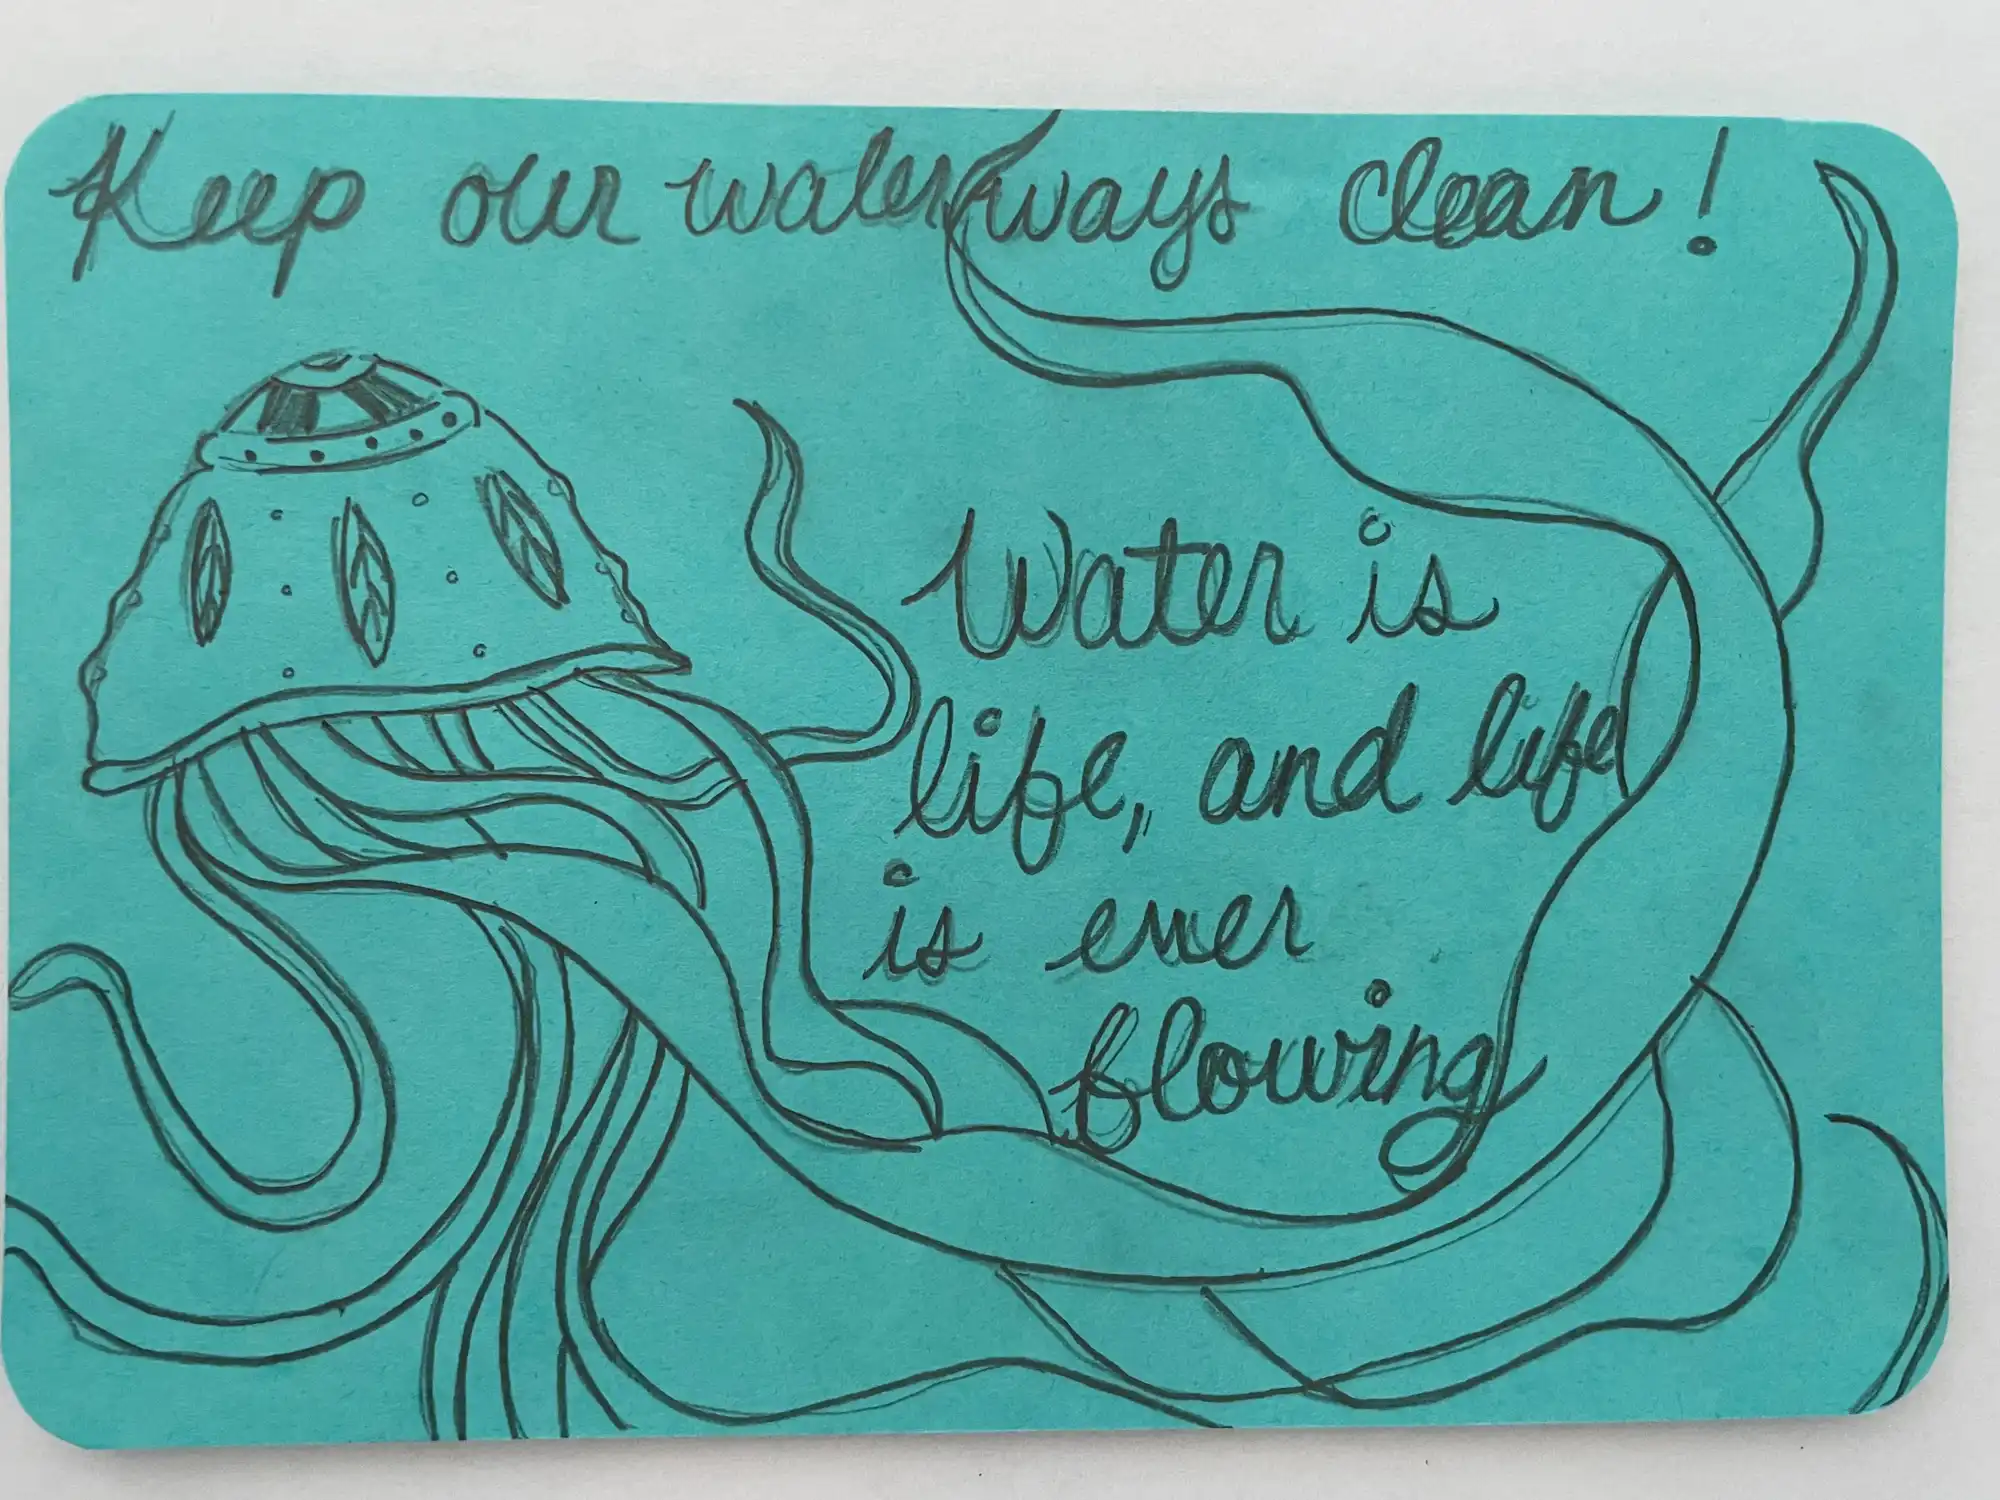 Keep our waterways clean!
Water is
life, and life
is ever
flowing